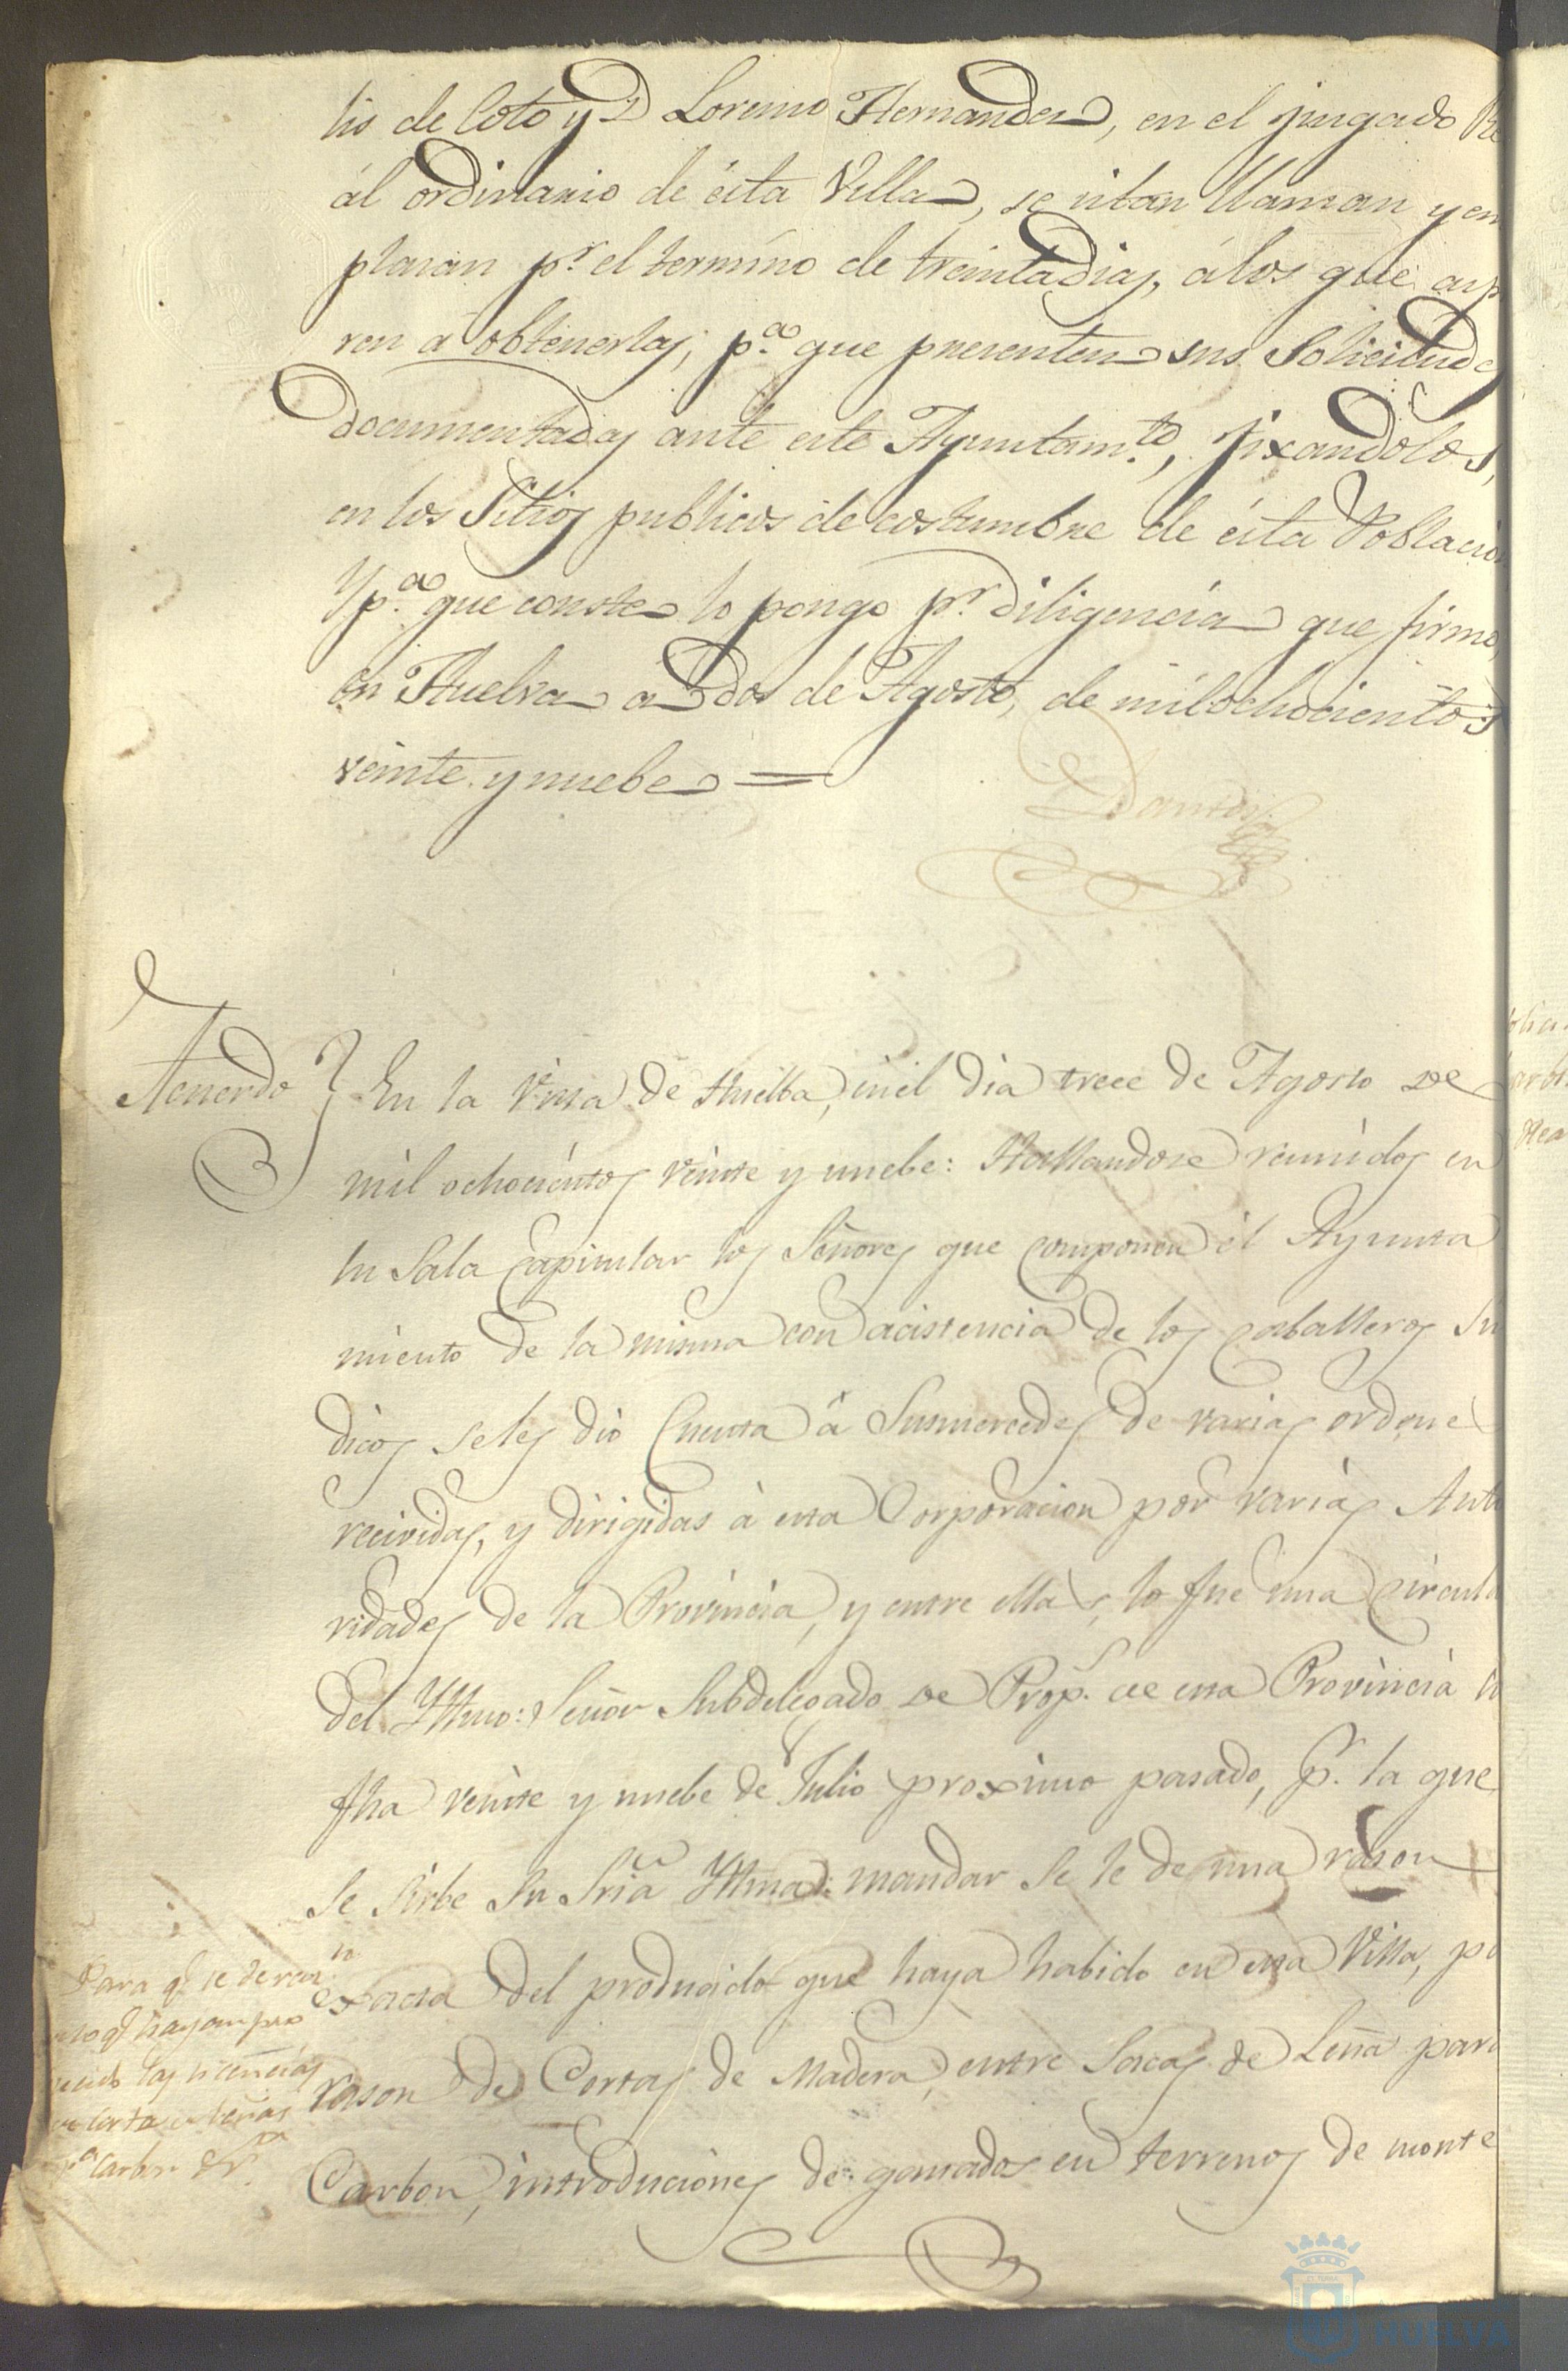 lis de Coto y D Lorenso Hernandes, en el jusgado Re
ál ordinario de ésta Villa, se sitan llaman y em
plasan p.r el termino de treinta dias, álos que aspi
ren á obtenerlas, p.a que presenten sus Solicitudes
documentadas ante este Ayuntam.to, fixandolos,
en los Sitios publicos de costumbre de ésta Poblacion
Y p.a que conste lo pongo p.r diligencia que firmo,
en Huelva a dos de Agosto, de milochocientos
veinte y nuebe =
Acuerdo
En la Villa de Huelba, en el dia trece de Agosto de
mil ochocientos veinte y nuebe: Hallandose reunidos en
su Sala Capitular los Señores que componen él Ayunta
miento de la misma con acistencia de los Caballeros Sin
dicos seles dió Cuenta á Susmercedes de varias ordene
recividas, y dirigidas á esta Corporacion por varias Auto
ridades de la Provincia, y entre ellas, lo fue una Circula
del Yllmo: Señor Subdelegado de Prop.s de esta Provincia su
fha veinte y nuebe de Julio proximo pasado, p.r la que
Se Sirbe Su Sria Yllma: mandar Se le de una rason
exacta del producido que haya habido en esta Villa, po
rason de Cortas de Madera, entre Sacas de Leña para
Carbon, introduciones de ganados en terrenos de monte
Para q.e se de razn
de lo q.e hayan pro
ducido las licencias
de Corta de leñas
p.a Carbon
HUELVA